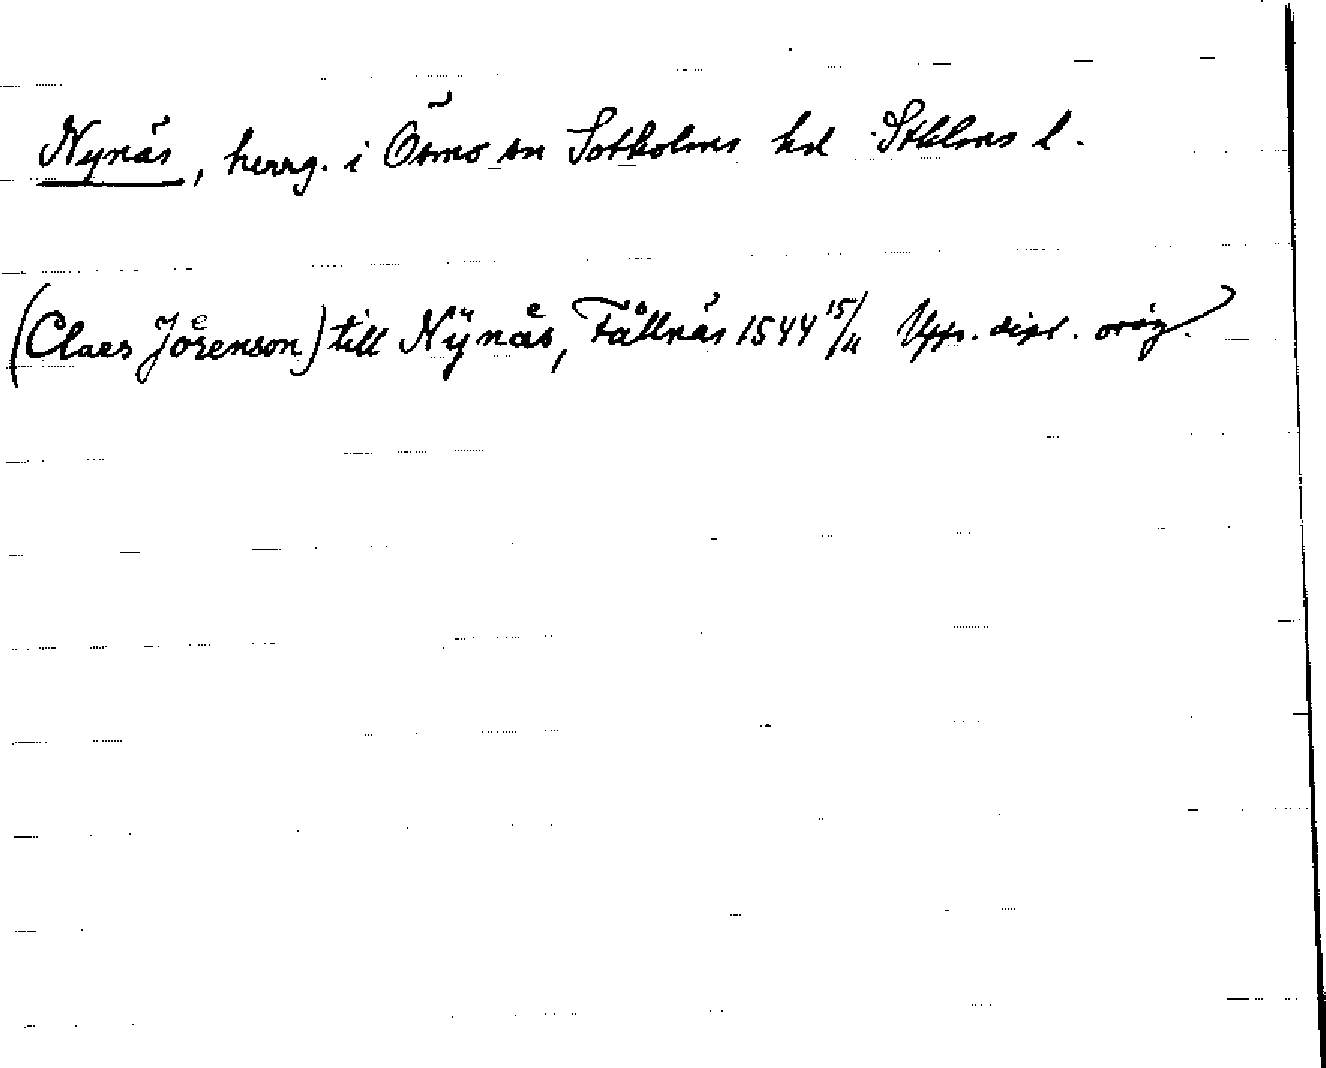 Nynäs, herrg. i Ösmo sn Sotholms hd Sthlms l.
(Claes Jöͤrenson) till Nÿnaͤs, Fållnäs 1544 15/11 Upps. dipl. orig.